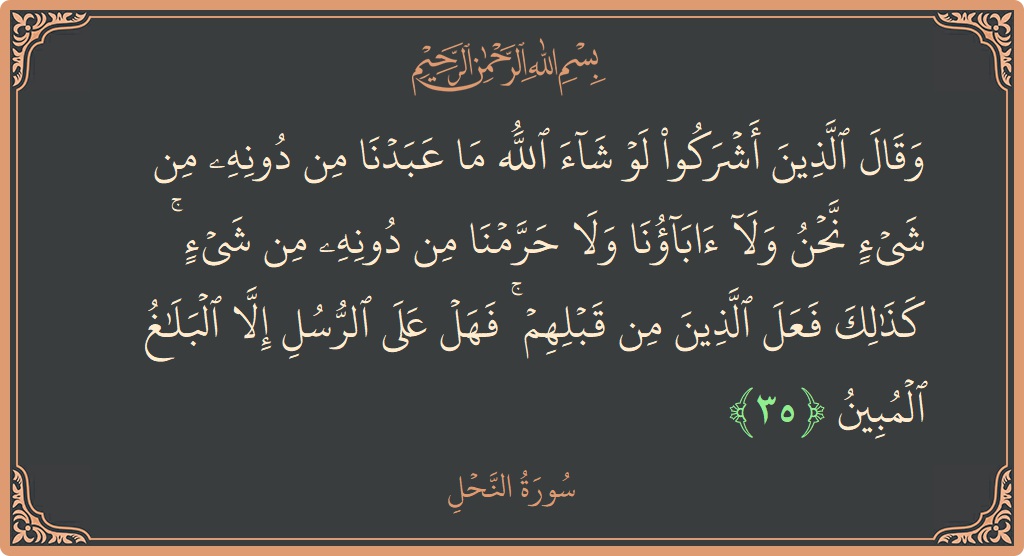 بِسْمِ ٱللَّهِ ٱلرَّحْمَٰنِ ٱلرَّحِيمِ
وَقَالَ ٱلَّذِينَ أَشْرَكُوا۟ لَوْ شَآءَ ٱللَّهُ مَا عَبَدْنَا مِن دُونِهِۦ مِن
شَىْءٍ نَّحْنُ وَلَآ ءَابَآؤُنَا وَلَا حَرَّمْنَا مِن دُونِهِۦ مِن شَىْءٍ ۚ
كَذَٰلِكَ فَعَلَ ٱلَّذِينَ مِن قَبْلِهِمْ ۚ فَهَلْ عَلَى ٱلرُّسُلِ إِلَّا ٱلْبَلَٰغُ
ٱلْمُبِينُ ﴿٣٥﴾
سُورَةُ النَّحْلِ